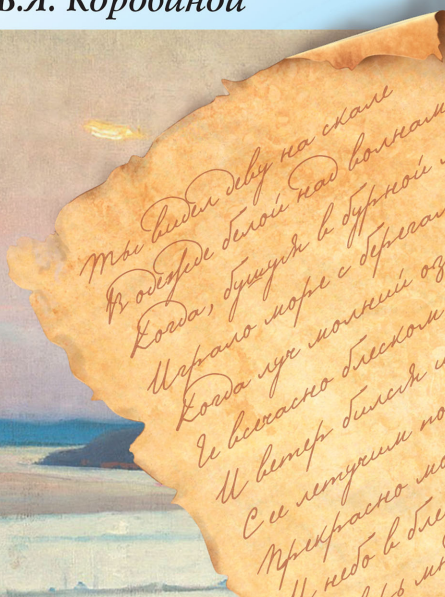 В.Я. Коровиной
Ты видел деву на скале
В одежде белой над волнам
Когда, бушуя в бурной
Играло море с берегам
Когда луч молний оз
Ее всечасно блеском
И ветер бился и
С ее летучим по
Прекрасно мо
И небо в бле
мн